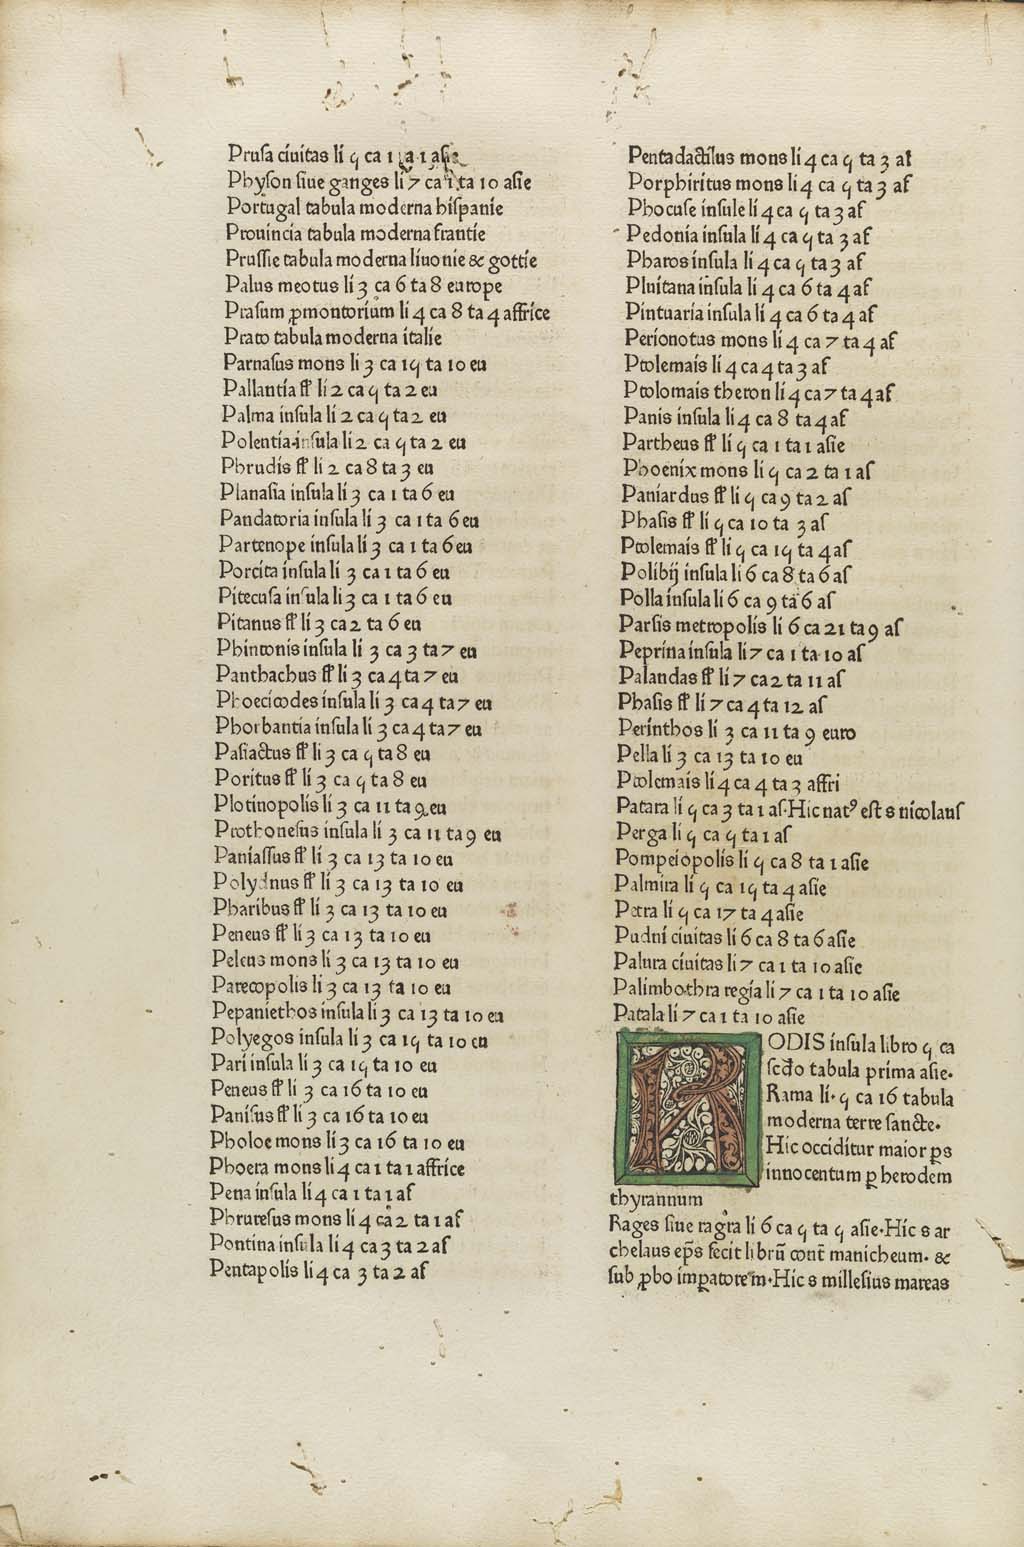 Pruſa ciuitas li 5 ca 1 ta 1 aſie
Phyſon ſiue ganges li 7 ca 1 ta 10 aſie
Portugal tabula moderna hiſpanie
Prouincia tabula moderna frantie
Pruſſie tabula moderna liuonie & gottie
Palus meotus li 3 ca 6 ta 8 europe
Praſum ꝓmontorium li 4 ca 8 ta 4 affrice
Prato tabula moderna italie
Parnaſus mons li 3 ca 15 ta 10 eu
Pallantia fl̕ li 2 ca 5 ta 2 eu
Palma inſula li 2 ca 5 ta 2 eu
Polentia inſula li 2 ca 5 ta 2 eu
Phrudis fl̕ li 2 ca 8 ta 3 eu
Planaſia inſula li 3 ca 1 ta 6 eu
Pandatoria inſula li 3 ca 1 ta 6 eu
Partenope inſula li 3 ca 1 ta 6 eu
Porcita inſula li 3 ca 1 ta 6 eu
Pitecuſa inſula li 3 ca 1 ta 6 eu
Pitanus fl̕ li 3 ca 2 ta 6 eu
Phintonis inſula li 3 ca 3 ta 7 eu
Panthachus fl̕ li 3 ca 4 ta 7 eu
Phoecicodes inſula li 3 ca 4 ta 7 eu
Phorbantia inſula li 3 ca 4 ta 7 eu
Paſiactus fl̕ li 3 ca 5 ta 8 eu
Poritus fl̕ li 3 ca 5 ta 8 eu
Plotinopolis li 3 ca 11 ta 9 eu
Prothoneſus inſula li 3 ca 11 ta 9 eu
Paniaſſus fl̕ li 3 ca 13 ta 10 eu
Polydnus fl̕ li 3 ca 13 ta 10 eu
Pharibus fl̕ li 3 ca 13 ta 10 eu
Peneus fl̕ li 3 ca 13 ta 10 eu
Peleus mons li 3 ca 13 ta 10 eu
Parecopolis li 3 ca 13 ta 10 eu
Pepaniethos inſula li 3 ca 13 ta 10 eu
Polyegos inſula li 3 ca 15 ta 10 eu
Pari inſula li 3 ca 15 ta 10 eu
Peneus fl̕ li 3 ca 16 ta 10 eu
Paniſus fl̕ li 3 ca 16 ta 10 eu
Pholoe mons li 3 ca 16 ta 10 eu
Phoera mons li 4 ca 1 ta 1 affrice
Pena inſula li 4 ca 1 ta 1 af
Phrureſus mons li 4 ca 2 ta 1 af
Pontina inſula li 4 ca 3 ta 2 af
Pentapolis li 4 ca 3 ta 2 af
Pentadactilus mons li 4 ca 5 ta 3 af
Porphiritus mons li 4 ca 5 ta 3 af
Phocuſe inſule li 4 ca 5 ta 3 af
Pedonia inſula li 4 ca 5 ta 3 af
Pharos inſula li 4 ca 5 ta 3 af
Pluitana inſula li 4 ca 6 ta 4 af
Pintuaria inſula li 4 ca 6 ta 4 af
Perionotus mons li 4 ca 7 ta 4 af
Ptolemais li 4 ca 4 ta 3 af
Ptolomais theron li 4 ca 7 ta 4 af
Panis inſula li 4 ca 8 ta 4 af
Partheus fl̕ li 5 ca 1 ta 1 aſie
Phoenix mons li 5 ca 2 ta 1 aſ
Paniardus fl̕ li 5 ca 9 ta 2 aſ
Phaſis fl̕ li 5 ca 10 ta 3 aſ
Ptolemais fl̕ li 5 ca 15 ta 4 aſ
Polibij inſula li 6 ca 8 ta 6 aſ
Polla inſula li 6 ca 9 ta 6 aſ
Parſis metropolis li 6 ca 21 ta 9 aſ
Peprina inſula li 7 ca 1 ta 10 aſ
Palandas fl̕ li 7 ca 2 ta 11 aſ
Phaſis fl̕ li 7 ca 4 ta 12 aſ
Perinthos li 3 ca 11 ta 9 euro
Pella li 3 ca 13 ta 10 eu
Ptolemais li 4 ca 4 ta 3 affri
Patara li 5 ca 3 ta 1 aſ. Hic natꝰ eſt s nicolauſ
Perga li 5 ca 5 ta 1 aſ
Pompeiopolis li 5 ca 8 ta 1 aſie
Palmira li 5 ca 15 ta 4 aſie
Petra li 5 ca 17 ta 4 aſie
Pudni ciuitas li 6 ca 8 ta 6 aſie
Palura ciuitas li 7 ca 1 ta 10 aſie
Palimbothra regia li 7 ca 1 ta 10 aſie
Patala li 7 ca 1 ta 10 aſie
RODIS inſula libro 5 ca
ſcd̄o tabula prima aſie.
Rama li. 5 ca 16 tabula
moderna terre ſancte.
Hic occiditur maior ꝑs
innocentum ꝑ herodem
thyrannum
Rages ſiue ragra li 6 ca 5 ta 5 aſie. Hic s ar
chelaus ep̄s fecit librū cont̄ manicheum. &
ſub ꝓbo imꝑatorem. Hic s milleſius mareas